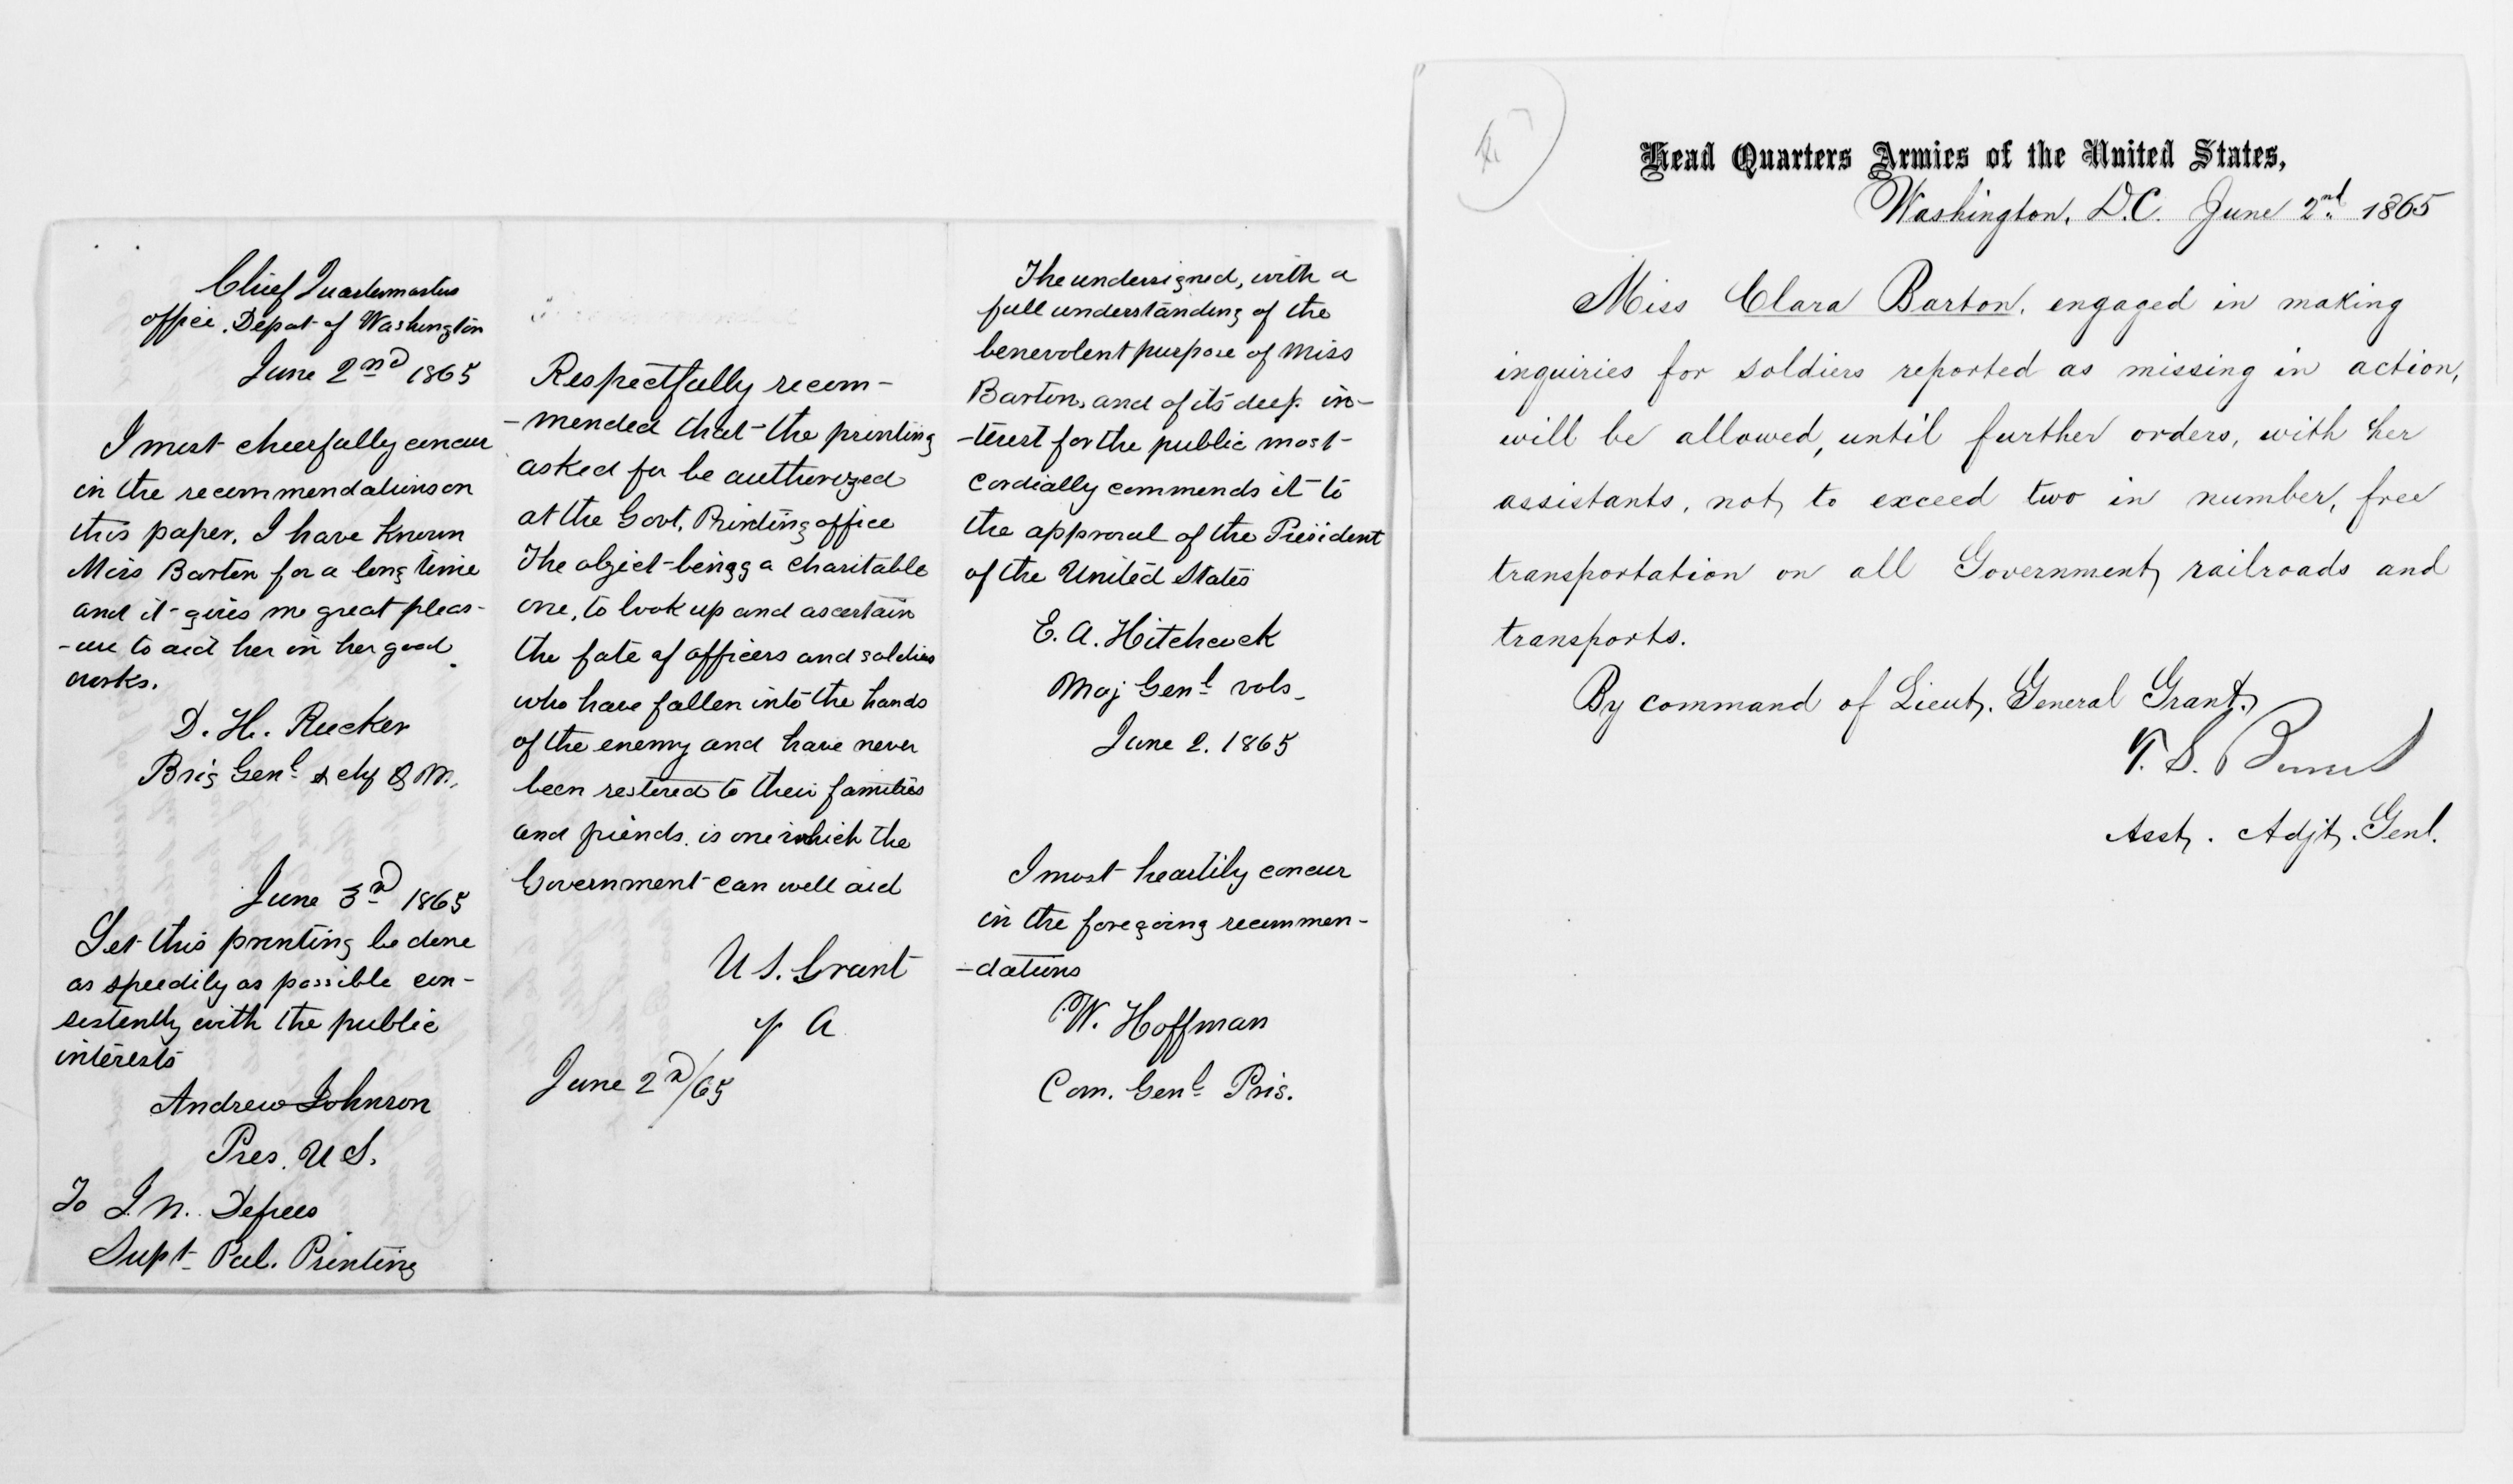 Chief Quartermasters
office. Depot of Washington
June 2nd 1865
I most cheerfully concur
in the recommendations on
this paper. I have known
Miss Barton for a long time
and it gives me great pleas-
-ure to aid her in her good
works.
D. H. Rucker
Brig Genl & chf Q M.
June 3d 1865
Let this printing be done
as speedily as possible con-
sistently with the public
interests
Andrew Johnson
Pres. U S.
To J. N. Defrees
Supt Pub. Printing
Respectfully recom-
-mended that the printing
asked for be authorized
at the Govt. Printing office
The object being a charitable
one, to look up and ascertain
the fate of officers and soldiers
who have fallen into the hands
of the enemy and have never
been restored to their families
and friends. is one which the
Government can well aid
U S. Grant
June 2d/65
The undersigned, with a
full understanding of the
benevolent purpose of Miss
Barton, and of its deep in-
-terest for the public most
cordially commends it to
the approval of the President
of the United States
E. A. Hitchcock
Maj Genl vols-
June 2. 1865
I most heartily concur
in the foregoing recommen-
-dations
W. Hoffman
Com. Genl Pris.
Head Quarters Armies of the United States,
Washington, D.C. June 2nd 1865
Miss Clara Barton, engaged in making
inquiries for soldiers reported as missing in action,
will be allowed, until further orders, with her
assistants, not to exceed two in number, free
transportation on all Government railroads and
transports.
By command of Lieut. General Grant.
T. S. Bowers
Asst. Adjt. Genl.